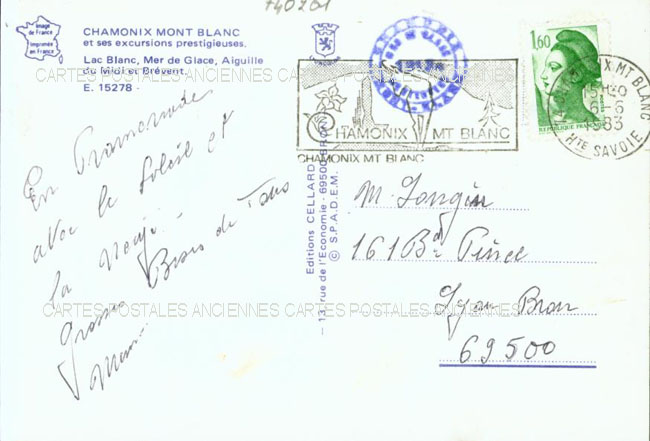 740201
Image
de France
Imprimée
en France
CHAMONIX MONT BLANC
et ses excursions prestigieuses.
Lac Blanc, Mer de Glace, Aiguille
du Midi et Brévent.
E. 15278 -
CARTES POSTALES ANCIENNES CARTES POSTALES ANCIENNES
En Promenade
avec le Soleil et
la Neige.
Grosses Bises de Tous
CHAMONIX MT BLANC
CHAMONIX MT BLANC
1,60
REPUBLIQUE FRANÇAISE
CHAMONIX MT BLANC
6-6
1983
HTE SAVOIE
Editions CELLARD
-13, rue de l'Economie - 69500 BRON
© S.P.A.D.E.M.
M. Longin
161 Bd Pinel
Lyon Bron
69500
CARTES POSTALES ANCIENNES CARTES POSTALES ANCIENNES